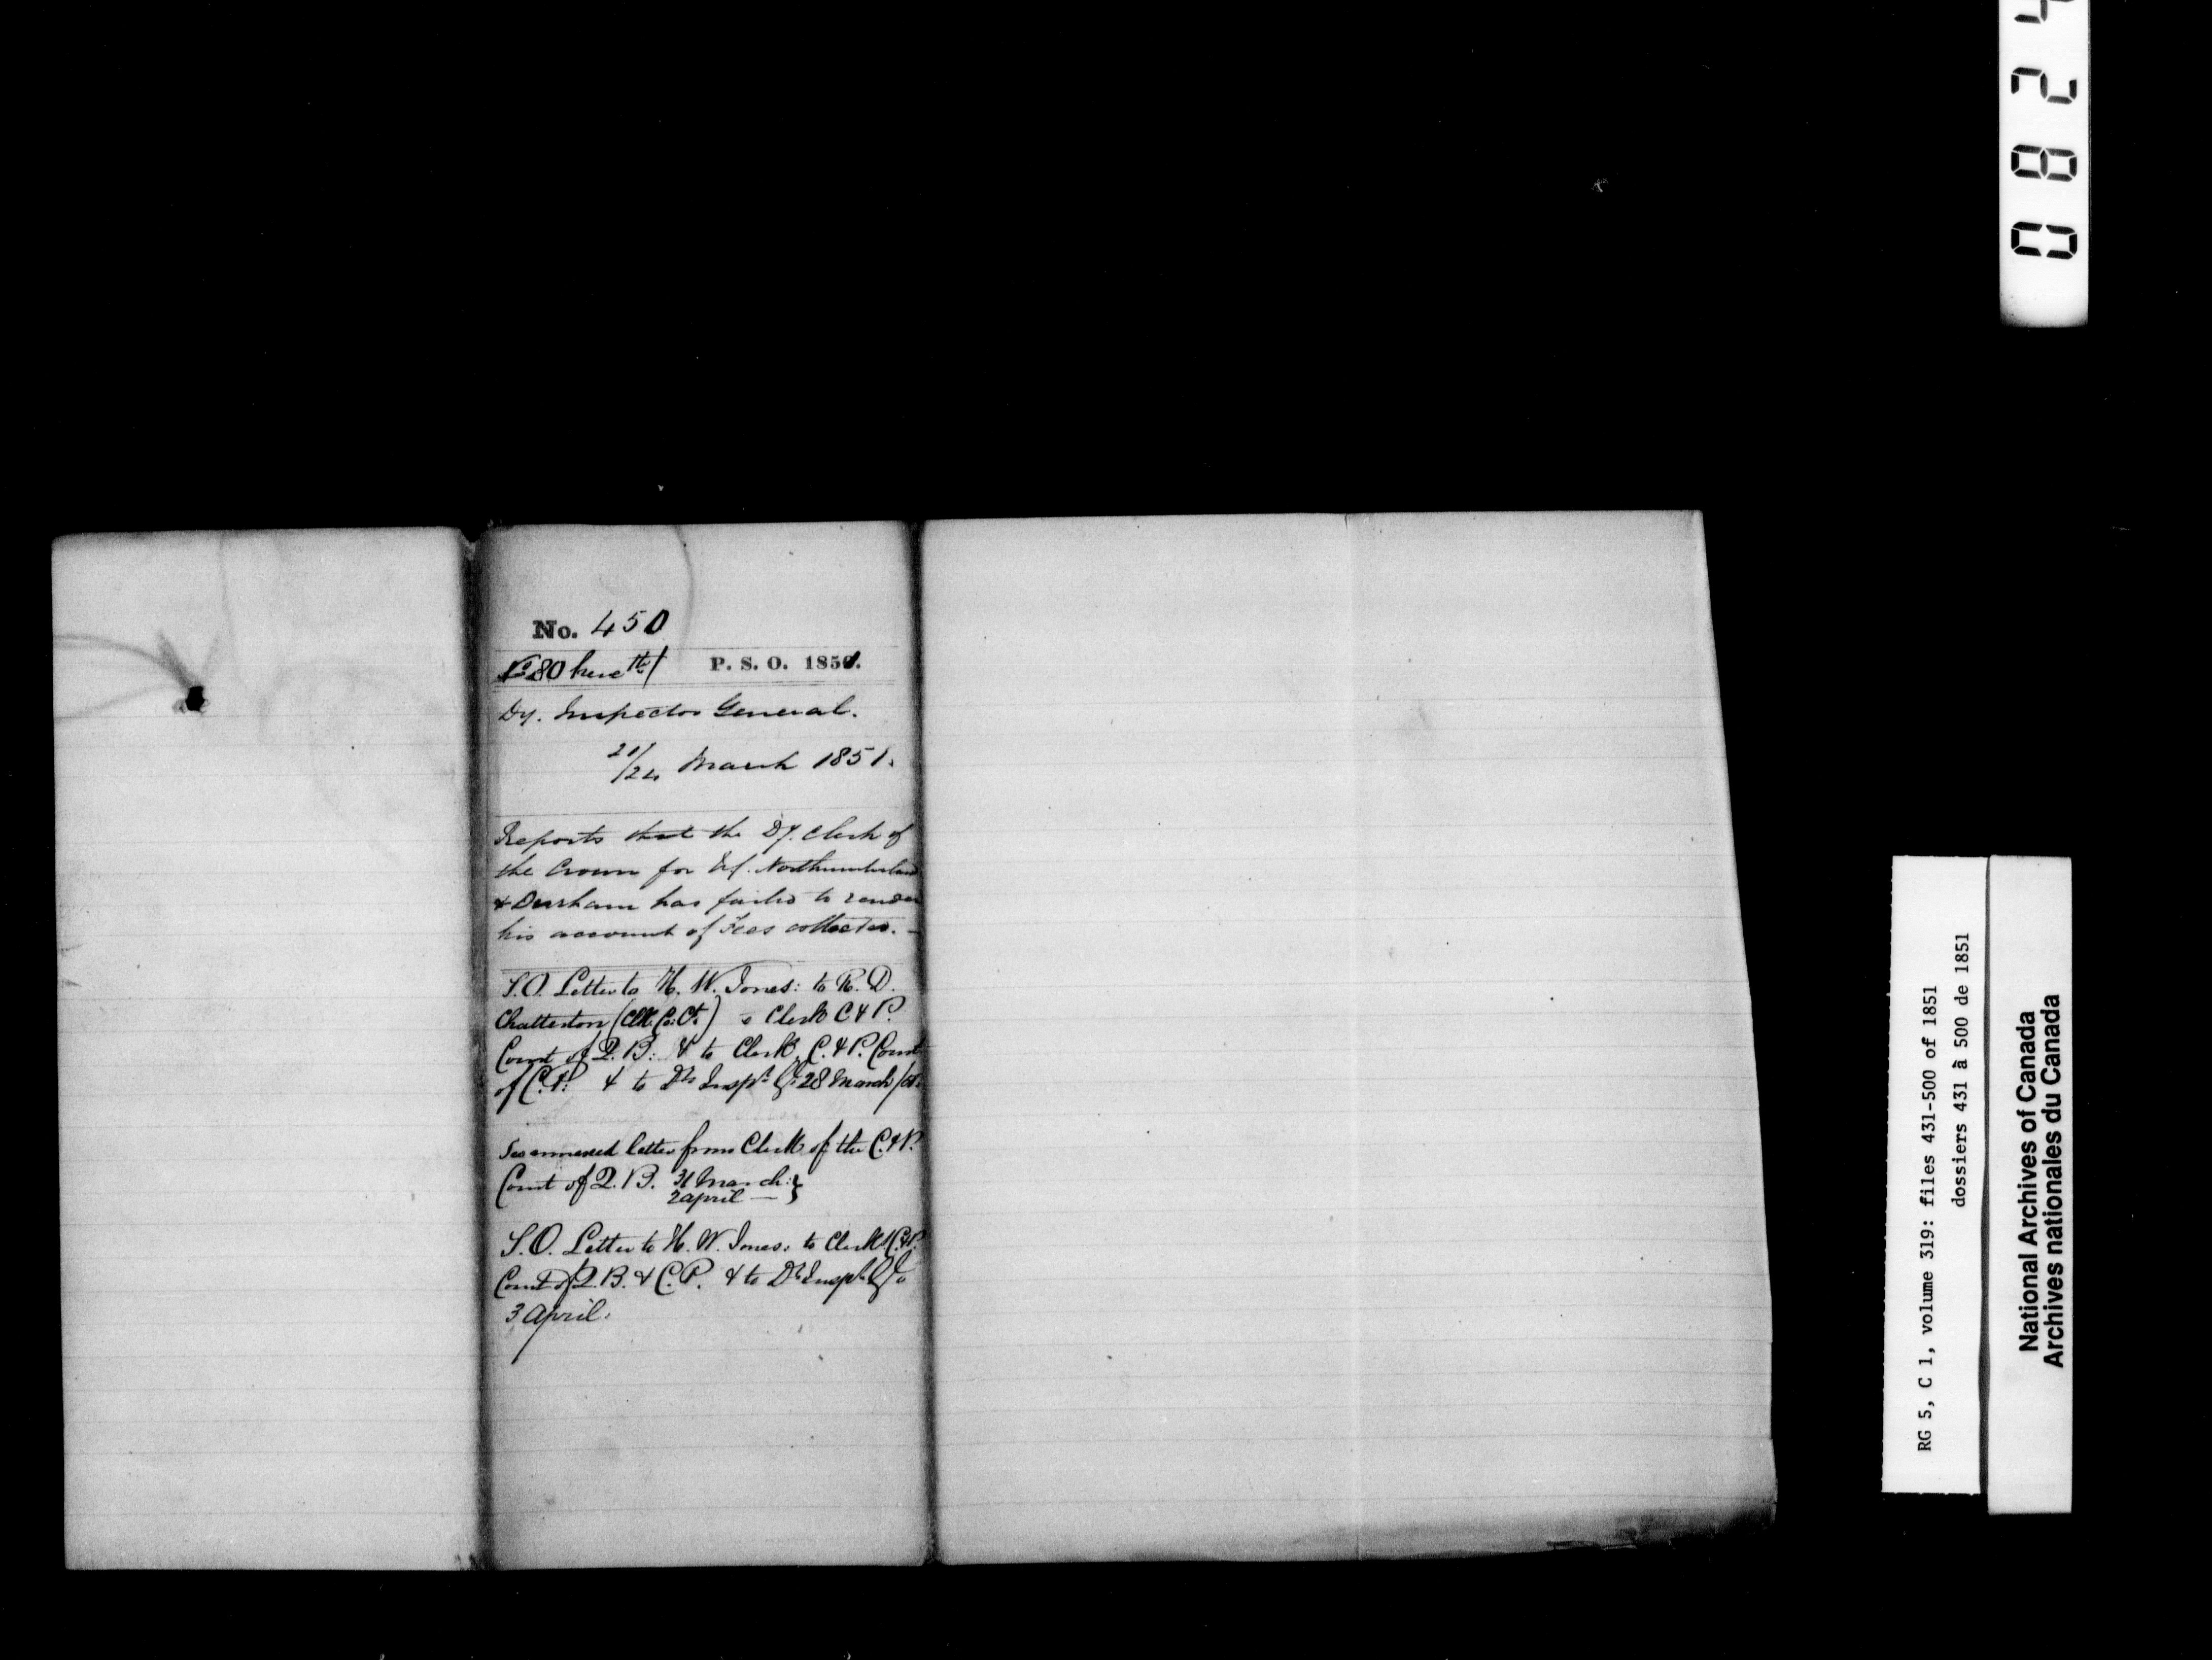 No. 450
No 80 herewth/ P. S. O. 1851.
Dy. Inspector General.
21/24 March 1851.
Reports that the Dy. Clerk of
the Crown for Northumberland
& Durham has failed to render
his account of Fees collected. —
S.O. Letter to H. W. Jones: to R. D.
Chatterton (Clk. Co: Ct.) Clerk C & P.
Court of Q. B: & to Clerk, C. & P. Court
of C. P: & to Dy Inspr Gl 28 March
See annexed letter from Clerk of the C. & P.
Court of Q. B. 31 March: }
2 April — }
S.O. Letter to H. W. Jones: to Clerk C. & P.
Court of Q. B. & C. P. & to Dy Inspr Gl
3 April.
0 8 2 4
RG 5, C 1, volume 319: files 431-500 of 1851
dossiers 431 à 500 de 1851
National Archives of Canada
Archives nationales du Canada